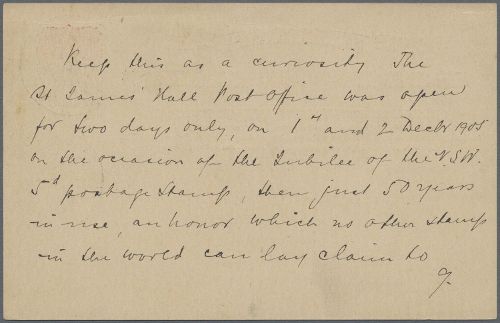 Keep this as a curiosity The
St James' Hall Post Office was open
for two days only, on 1st and 2 Decbr 1905
on the occasion of the Jubilee of the N.S.W.
5d postage stamp, then just 50 years
in use, an honor which no other stamp
in the world can lay claim to